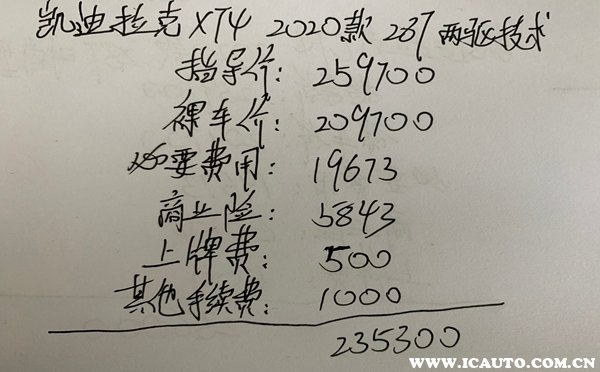 凯迪拉克XT4 2020款 28T 两驱技术
指导价: 259700
裸车价: 209700
必要费用: 19673
商业险: 5843
上牌费: 500
其他手续费: 1000
235300
WWW.ICAUTO.COM.CN